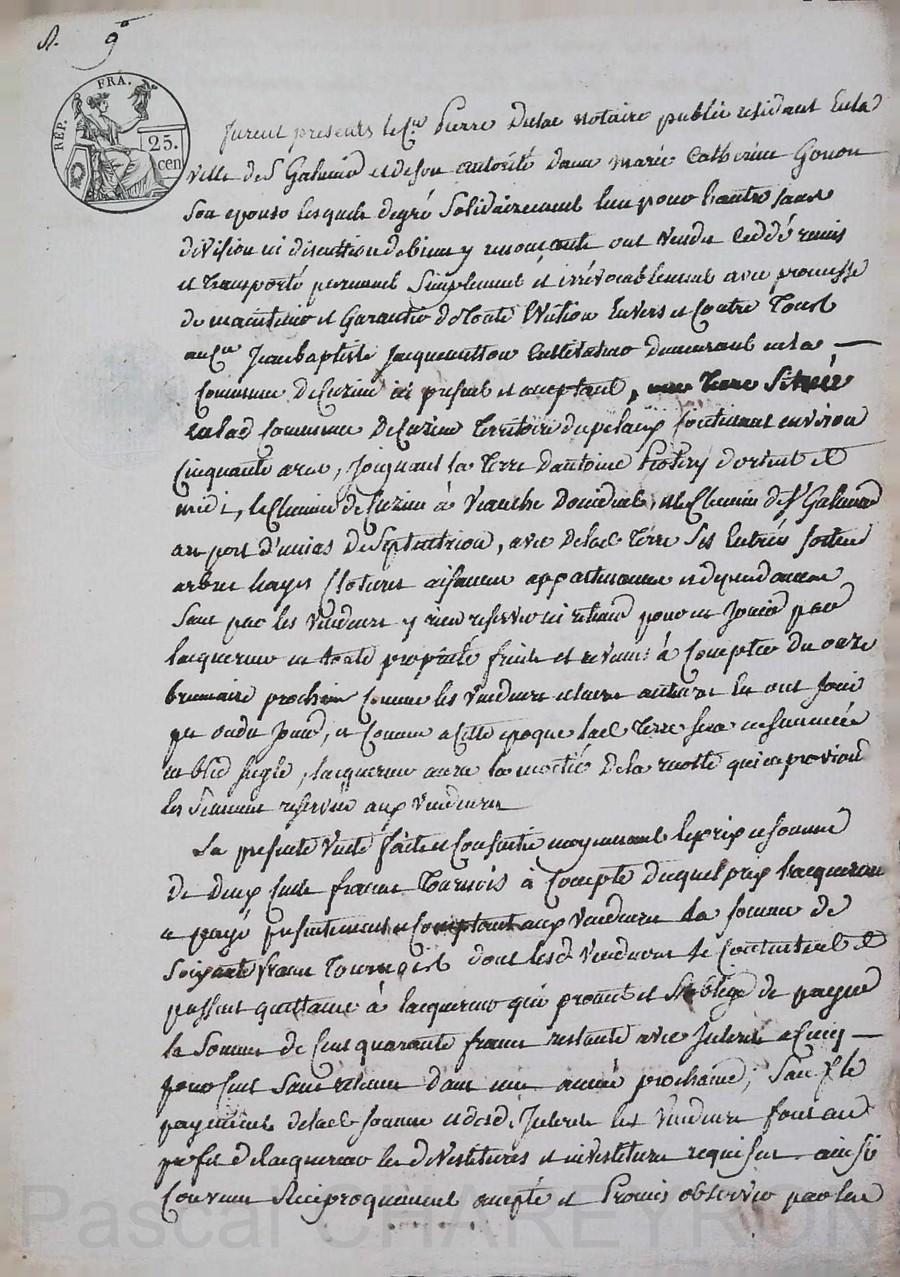 9
REP. FRA.
25.
cen
furent presents le Cen Pierre Dulac notaire public residant En la
ville de St Galmier et de son autorité dame marie Catherine Gonon
son epouse lesquels de gré Solidairement l'un pour l'autre sans
division ni discution de biens y renoncants ont vendu ceddé remis
et transporté purement Simplement et irrévocablement avec promesse
de maintenir et Garantir de toute Eviction Envers et Contre Tous
au Cen Jean baptiste Jacquemetton Cultivateur demeurant en la
Commune de Cuzieu ici present et acceptant, une Terre Située
en lad Commune De Cuzieu Territoire du Contenant environ
Cinquante ares, Joignant la Terre d'antoine d'orient et
midi, le Chemin de Cuzieu à d'occident, et le Chemin de St Galmier
au port d'unias de Septentrion, avec delad Terre Ses Entrées sorties
arbres hayes Clotures aisances appartenances et dependances
Sans par les Vendeurs y rien reserver ni retenir pour en Jouir par
lacquereur en toute proprieté fruits et revenus à Compter du onze
brumaire prochain Comme les Vendeurs et leurs auteurs En ont Joui
pu ou du Jouir, et Comme a Cette epoque lad Terre sera ensemencée
en bled seigle, lacquereur aura la moitié de la recolte qui en proviendra
les Semences reservées aux Vendeurs
La presente Vente faite et Consentie moyennant le prix et somme
De deux Cents francs Tournois à Compte duquel prix l'acquereur
a payé presentement et Comptant aux Vendeurs la somme de
Soixante francs Tournois dont lesd Vendeurs se Contentent et
passent quittance à lacquereur qui promet et S'oblige de payer
la Somme de Cent quarante francs restante avec Interets a Cinq
pour Cent Sans retenue dans une année prochaine, Sauf le
payement delad Somme et desd. Interets les Vendeurs font au
profit de lacquereur les devestitures et investitures requises ainsi
Convenu Reciproquement accepté et Promis observer par les
Pascal CHAREYRON